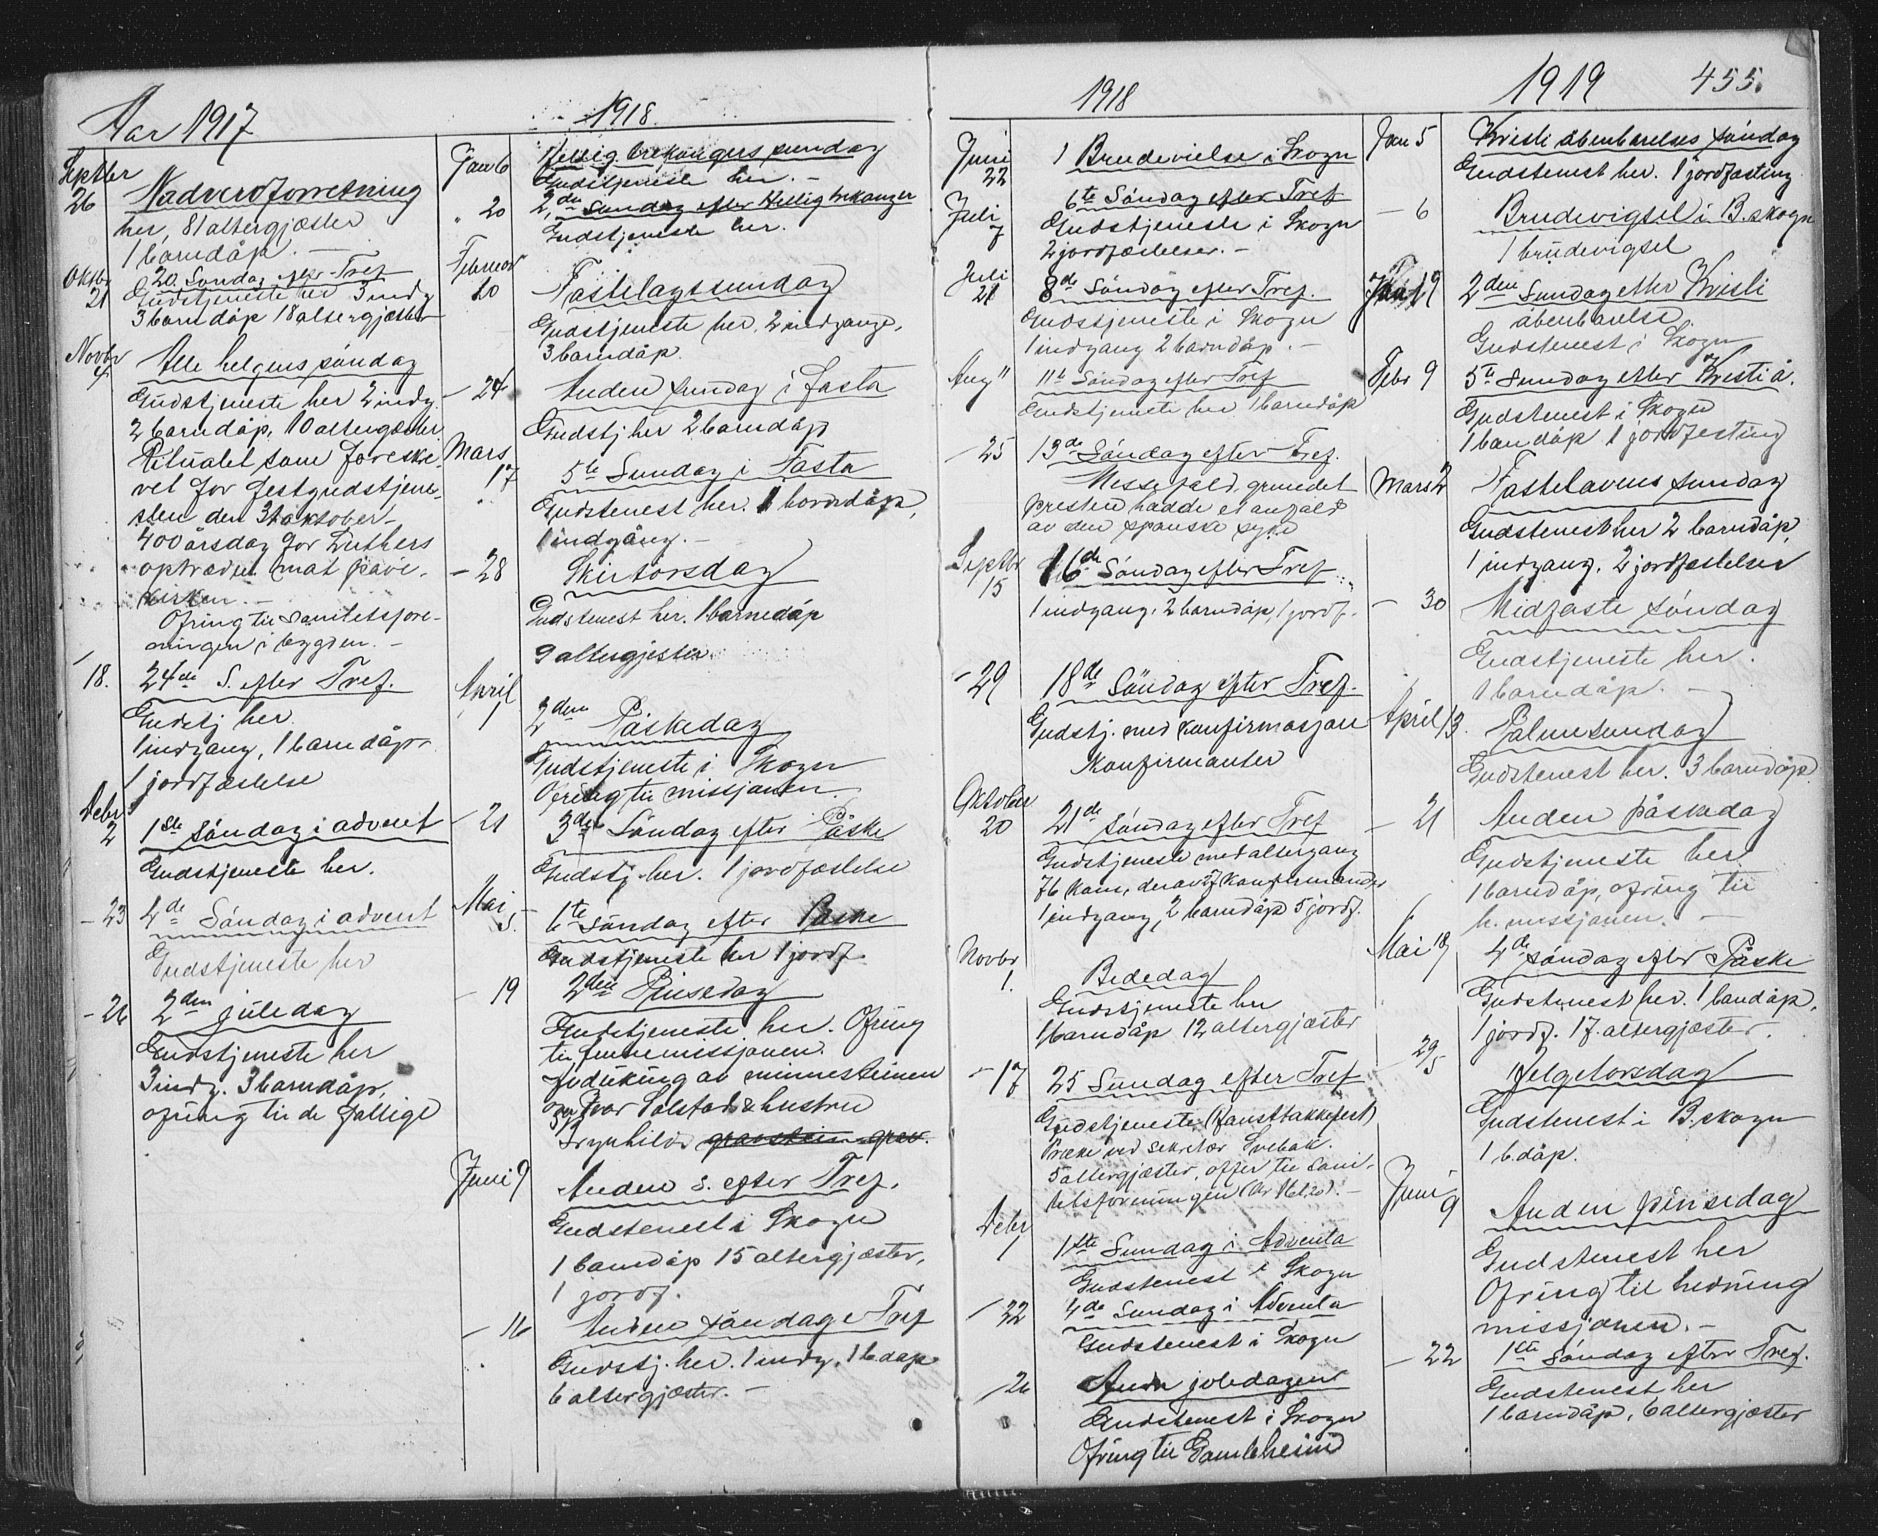 Aar 1917
Septbr
26
Nadverdforretning
her, 81 altergjæster
1 barndåp. —
Oktbr
21
20. Søndag efter Tref
Gudstjeneste her 3 indg
3 barndåp 18 altergjæster
Novbr
4
Alle helgens søndag
Gudstjeneste her 2 indg.
2 barndåp, 10 altergæster
Ritualet som foreskre-
vet for festgudstjene-
sten den 31 oktober
400 årsdag for Luthers
optræden mot pave-
kirken. —
Ofring til Sanitetsfore-
ningen i bygden. —
18.
24de S. efter Tref.
Gudstj her.
1 indgang, 1 barndåp,
1 jordfæstelse
Debr
2
1ste søndag i advent
Gudstjeneste her.
- 23
4de Søndag i advent
Gudstjeneste her
- 26
2den juledag
Gudstjeneste her
3 indg. 3 barndåp,
ofring til de fattige
1918.
Jan 6
Hellig trekongers sunday
Gudstjeneste her. —
" 20
2den Sundag efter Hellig trekonger
Gudstjeneste her.
Februar
10
Fastelagssundag
Gudstjeneste her, 2 indgange,
3 barndåp.
- 24
Anden sundag i fasta
Gudstj her 2 barndåp
Mars
17
5te Sundag i Fasta
Gudstenest her. 1 barndåp,
1 indgång. —
- 28
Skirtorsdag
Gudstenest her. 1 barnedåp
9 altergjester.
April
1
2den Påskedag
Gudstjeneste i Skogn
Ofring til missjonen.
- 21
3de Søndag efter Påske
Gudstj. her. 1 jordfæstelse
Mai
5.
6te sundag efter Påske
Gudstjeneste her 1 jordf.
- 19
2den Pinsedag
Gudstjeneste her. Ofring
til indremissjonen.
Avduking av minnesteinen
over Ivar Solstad & hustru
Brynhild gravstein grav.
Juni 9
Anden s. efter Tref.
Gudstenest i Skogn
1 barndåp 15 altergjæster,
1 jordf.
- 16
Anden søndag e Tref
Gudstj. her. 1 indg. 1 b dåp
6 altergjæster. —
1918
Juni
22
1 Brudevielse i Skogn
Juli
7
6te Søndag efter Tref
Gudstjeneste i Skogn
2 jordfæstelser. —
Juli
21
8de Søndag efter Tref.
Gudstjeneste i Skogn
1 indgang 2 barndåp. —
Aug 11
11te Søndag efter Tref
Gudstjeneste her. 1 barndåp
- 25
13de Søndag efter Tref.
Messefald, grundet
presten hadde et anfald
av den spanske syke
Septbr
15
16de Søndag efter Tref.
1 indgang, 2 barndåp, 1 jordf.
- 29
18de Søndag efter Tref.
Gudstj. med konfirmasjon
konfirmanter
Oktober
20
21de Søndag efter Tref
Gudstjeneste med altergang
76 kom, derav konfirmander
1 indgang, 2 barndåp 5 jordf.
Novbr
1.
Bededag
Gudstjeneste her
1 barndåp 12 altergjæster
- 17
25 Sundag efter Tref
Gudstjeneste (høsttakkefest)
Præke ved sekretær Svebakk.
5 altergjæster, offer til Sani-
tetsforeningen (kr 161,20). —
Debr
1
1ste Sundag i Adventa
Gudstenest i Skogn
- 22
4de Sundag i Adventa
Gudstenest i Skogn
- 26
Anden joledagen
Gudstenest i Skogn
Ofring til Gamleheim
1919
455.
Jan 5
Kristi åbenbarelses søndag
Gudstenest her. 1 jordfæsting
- 6
Brudevigsel i B. skogn
1 brudevigsel
Jan 19
2den Sundag etter Kristi
åbenbarelse
Gudstenest i Skogn
Febr 9
5te Sundag etter Kristi å.
Gudstenest i Skogn
1 barndåp 1 jordfesting
Mars 2
Fastelavens sundag
Gudstenest her 2 barndåp,
1 indgang, 2 jordfæstelser
- 30
Midfaste søndag
Gudstjeneste her.
1 barndåp. —
April 13.
Palmesundag
Gudstenest her. 3 barndåp.
- 21
Anden påskedag
Gudstjeneste her.
1 barndåp, ofring til
h. missjonen. —
Mai 18
4de søndag efter Påske
Gudstenest her. 1 barndåp,
1 jordf. 17. altergjæster.
29/5
Helgetorsdag
Gudstenest i B. skogn
1 b dåp.
Juni
9
Anden pinsedag
Gudstenest her
Ofring til hedning
missjonen. —
- 22
1ste Søndag efter Tref.
Gudstenest her
1 barndåp, 6 altergjæster